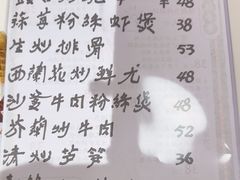 48
蒜茸粉絲虾煲 38
生炒排骨 53
西蘭花炒鲜尤 48
沙爹牛肉粉絲煲 48
芥蘭炒牛肉 52
清炒芦笋 36